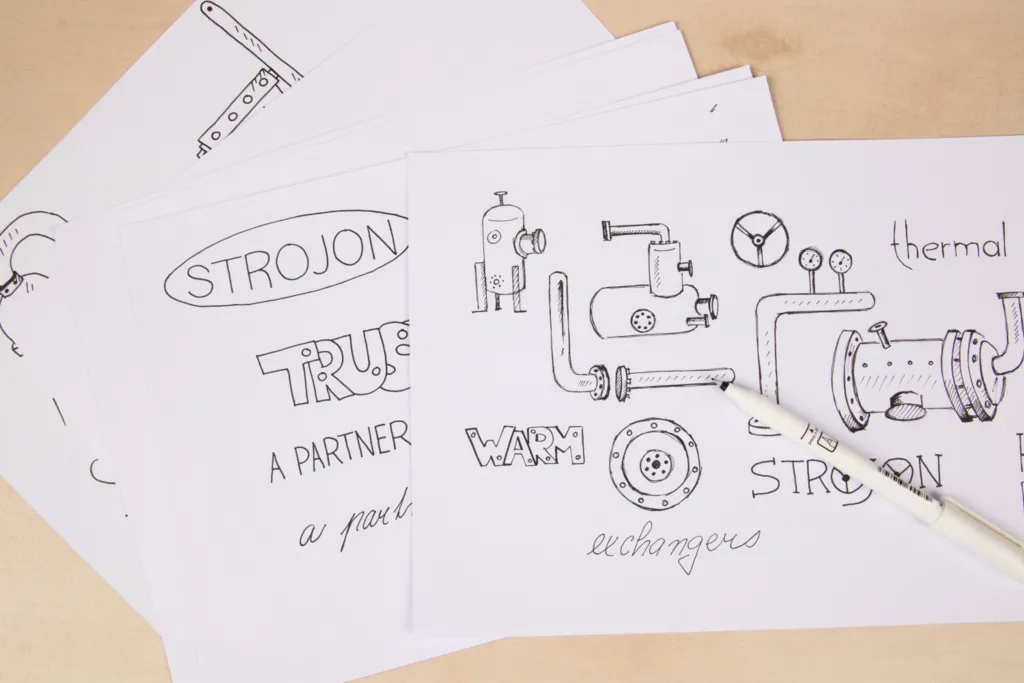 STROJON
TRUS
A PARTNER
a part
thermal
WARM
STROJON
exchangers